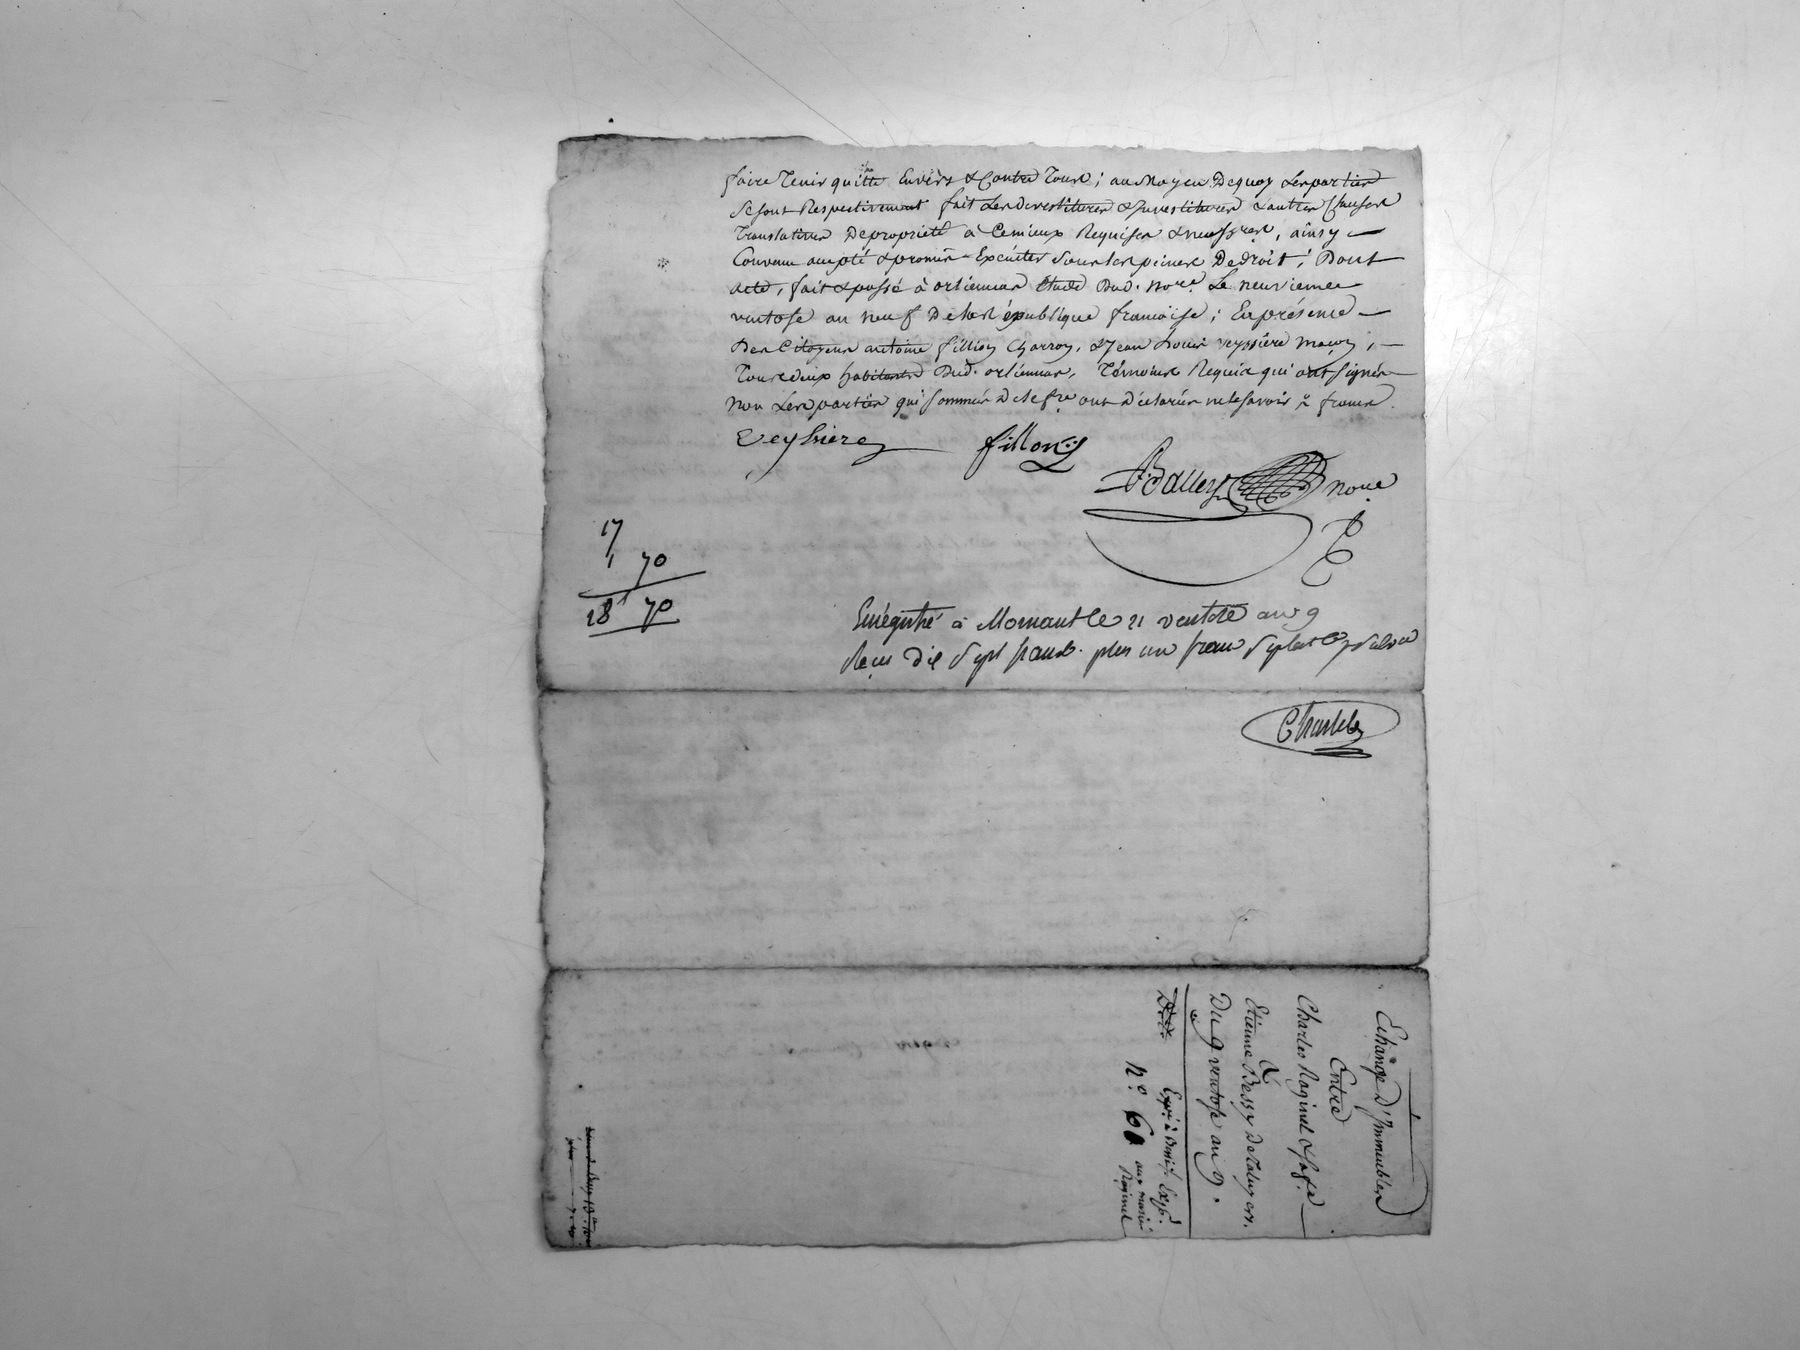 faire Tenir quitte Envers & Contre Tous ; au Moyen Dequoy Les parties
Se sont Respectivement fait Les Devestitures & Investitures & autres Clauses
Translatives De propriété à Ce mieux Requises & necess.res, ainsy
Convenu accepté & promis Exécuter Sous les peines De droit ; Dont
acte, fait & passé à orlienas étude Dud. No.re Le neuvieme
ventose an neuf De la République françoise ; En présence
Des Citoyens antoine fillion Charron, & Jean Louis veyssiere maçon,
Tous deux habitants Dud. orlienas, Témoins Requis qui ont signés
Non Les parties qui Sommés De le f.re ont Déclarés ne le savoir
Veyssiere fillion Balley no.re
17
1 70
18 70
Enregistré à Mornant le 21 ventose an 9
Reçu dix Sept francs. plus un franc Septante
Charle
Echange D'Immeubles
Entre
Charles Raginel & Sa fe
&
Etienne Bessy De Taluyers.
Du 9 ventose an 9.
N.o 60
aux mariés
Raginel